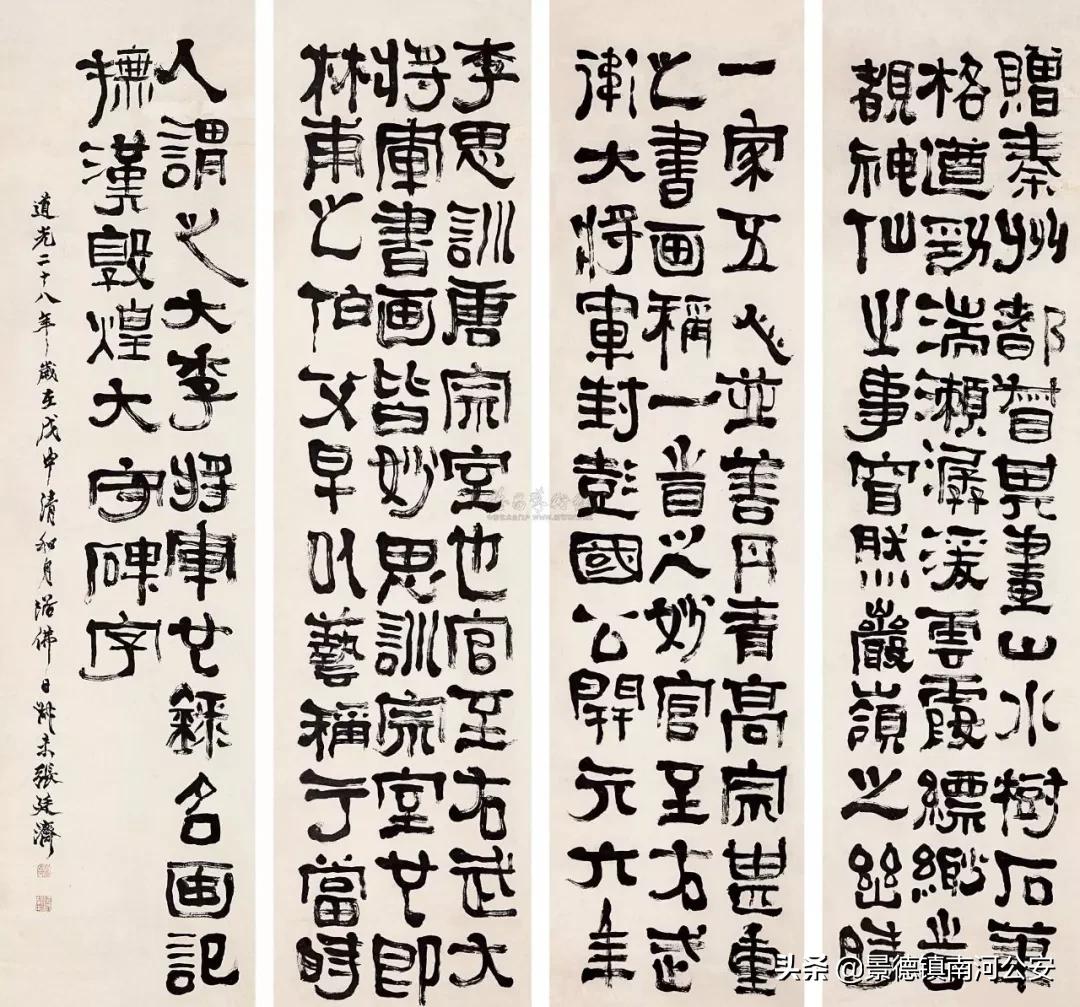 李思訓唐宗室也官至右武大
將軍書画皆妙思訓宗室也即
林甫之伯父早以藝稱于當時
一家五人並善丹青高宗甚重
之書画稱一旹之妙官至右武
衛大將軍封彭國公開元六年
贈秦州都督其畫山水樹石筆
格遒勁湍瀨潺湲雲霞縹緲旹
覩神仙之事窅然巖嶺之幽時
人謂之大李將軍也錄名画記
撫漢敦煌大守碑字
道光二十八年歲在戊申清和月浴佛日叔未張廷濟
头条 @景德镇南河公安